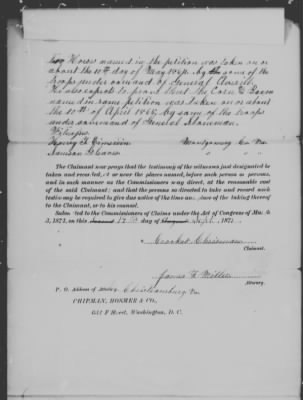 Horse named in the petition was taken on or
about the 10th day of May 1864. by the some of the
troops under command of General
He also expects to prove that the Corn &
named in same petition was taken on or about
the 10th of April 1865 by some of the troops
under command of General
Witnesses
Henry D. Montgomery Co Va
" " "
The Claimant now prays that the testimony of the witnesses just designated be
taken and recorded, at or near the places named, before such person or persons,
and in such manner as the Commissioners may direct, at the reasonable cost
of the said Claimant; and that the person so directed to take and record such
testimony may be required to give due notice of the time and place of the taking thereof
to the Claimant, or to his counsel.
Submitted to the Commissioners of Claims under the Act of Congress of March
3, 1871, on this day of Sept. 1871.
Crocket
Claimant.
James F. Miller
Attorney.
P. O. Address of Attorney, Christiansburg Va
CHIPMAN, HOSMER & CO.,
632 F Street, Washington, D. C.